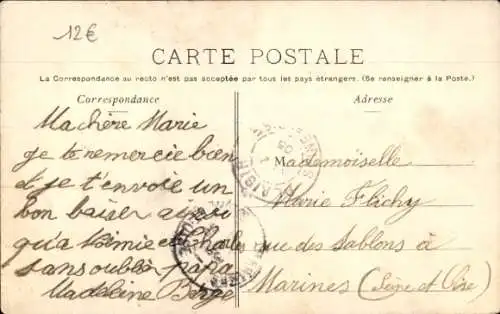 12€
CARTE POSTALE
La Correspondance au recto n'est pas acceptée par tous les pays étrangers. (Se renseigner à la Poste.)
Correspondance
Ma chère Marie
je te remercie bien
et je t'envoie un
bon baiser ainsi
qu'a Mimie et Charles
sans oublier papa
Madeleine
Adresse
Mademoiselle
Marie Flichy
rue des Sablons à
Marines (Seine et Oise)